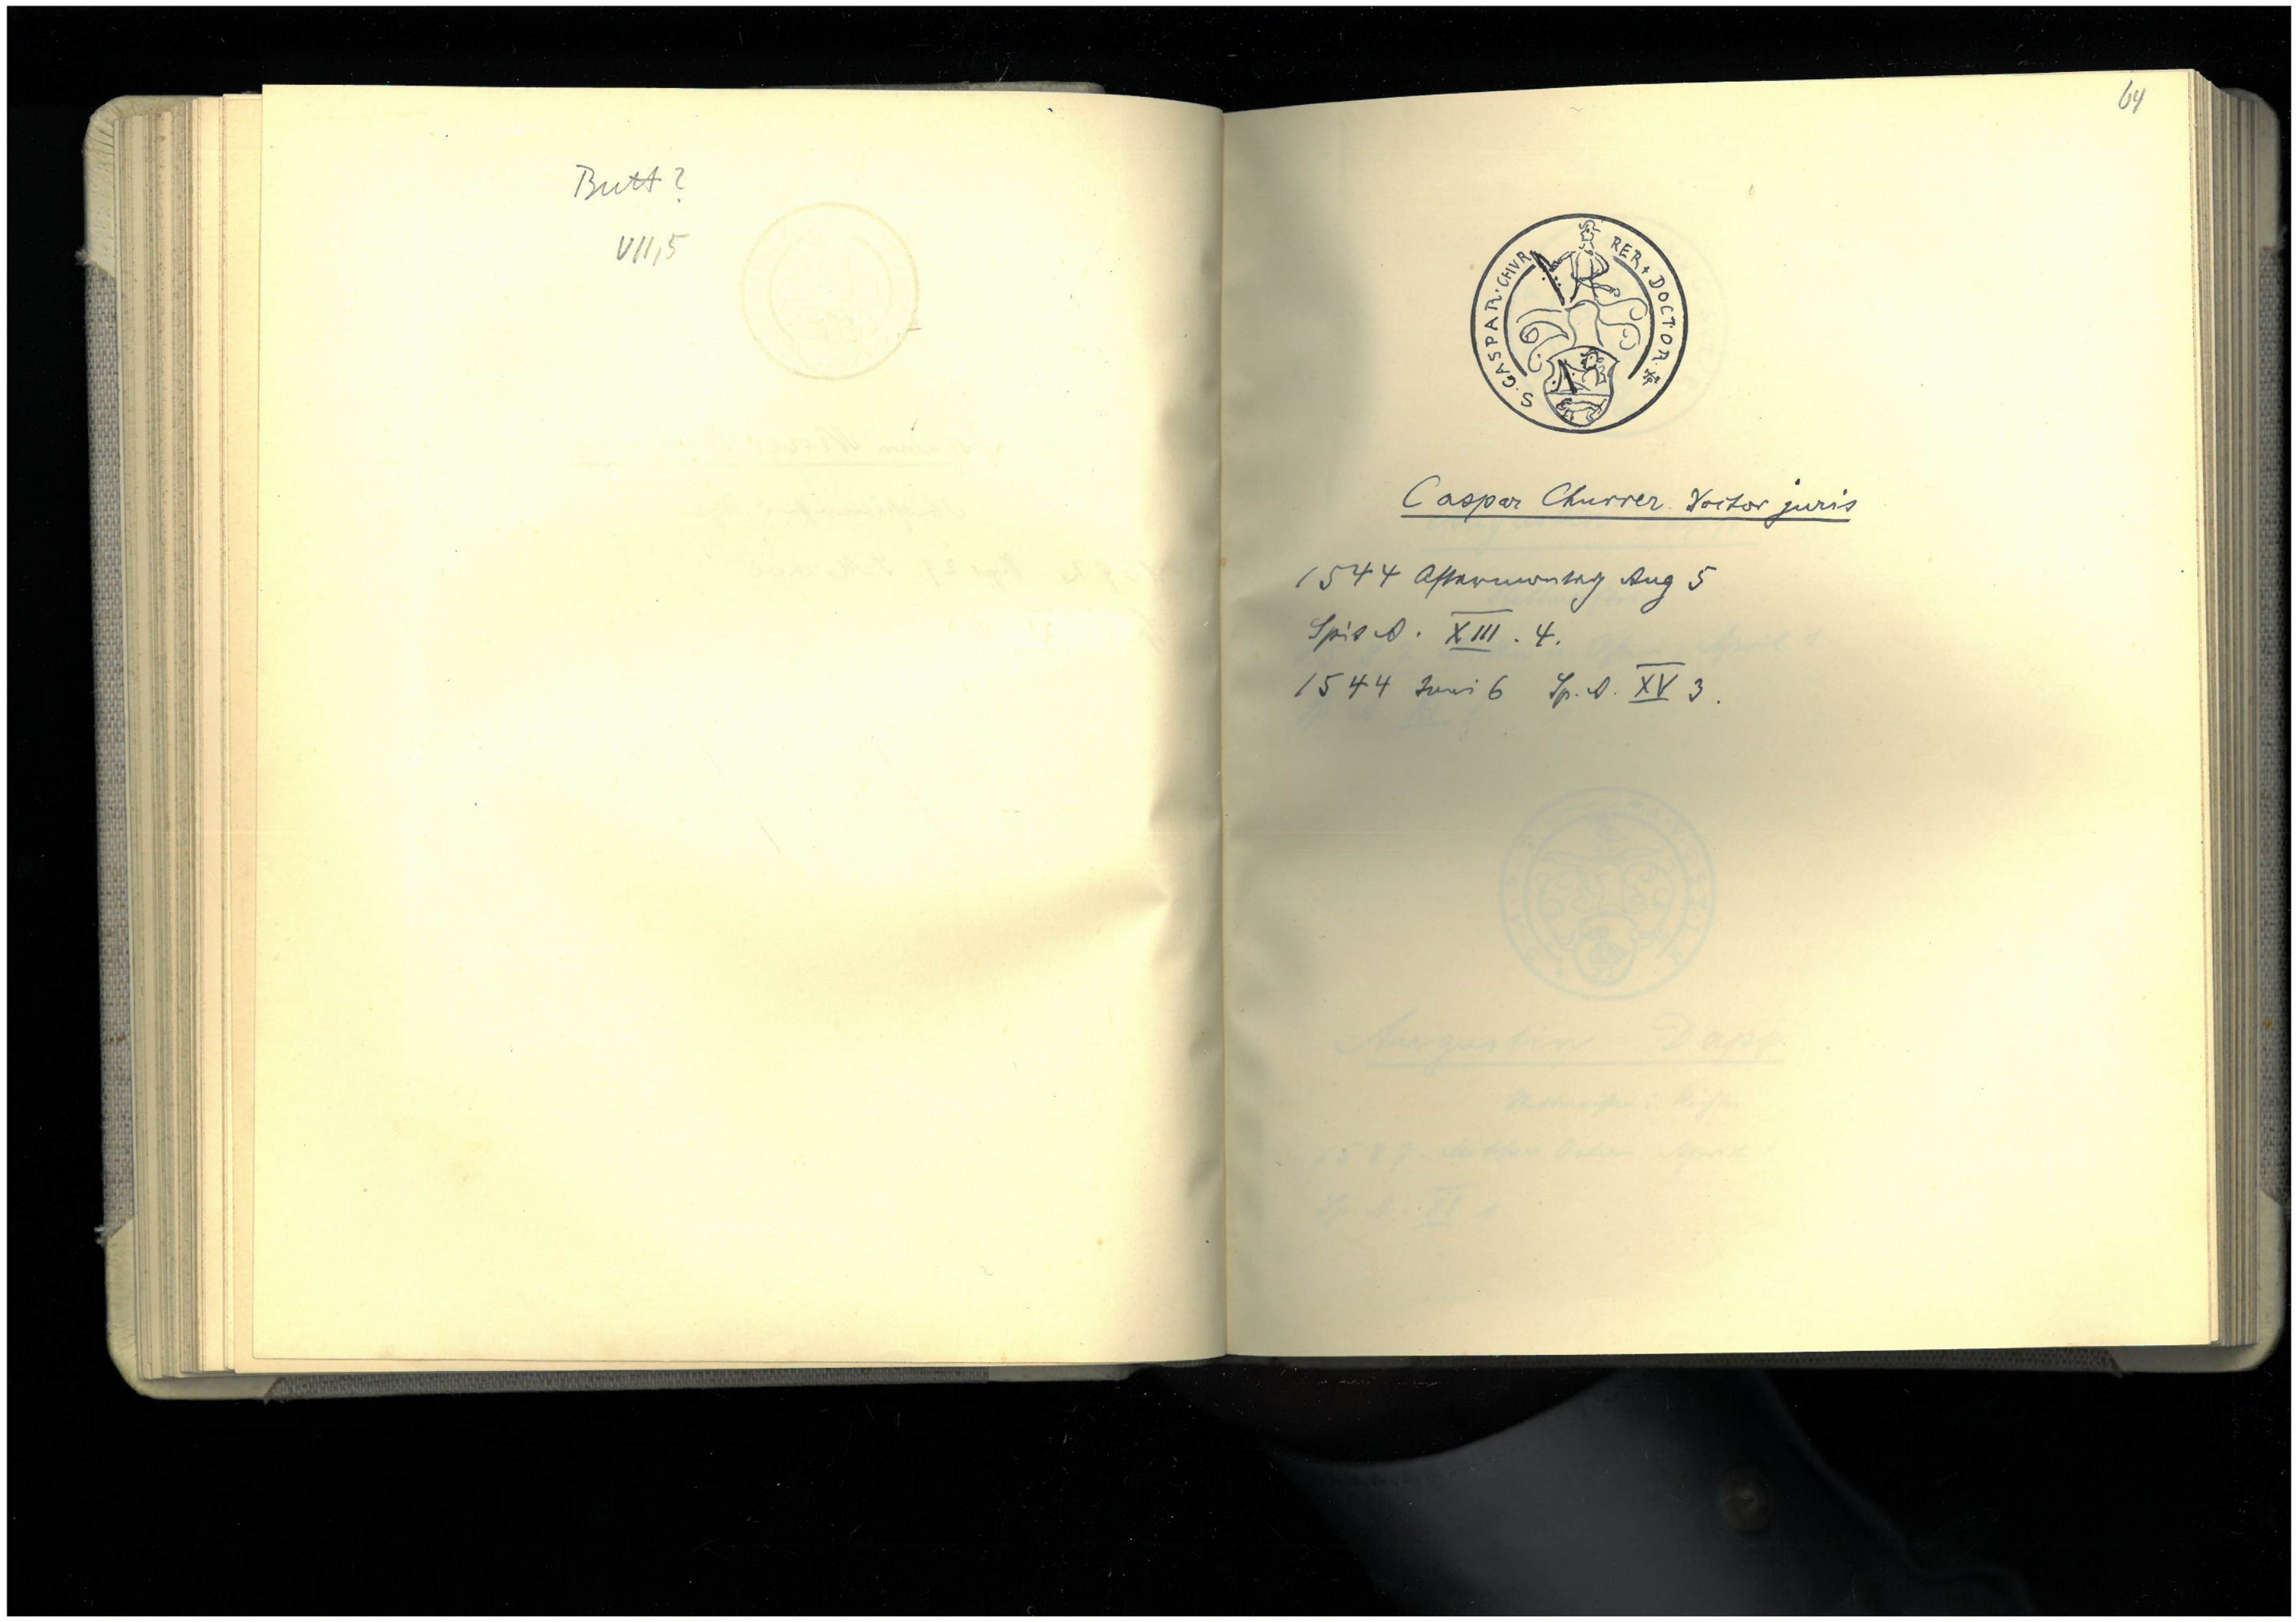 Butt?
VII,5
64
S. GASPAR. CHVR RER + DOCTOR.
Caspar Churrer. Doctor juris
1544 Aftermontag Aug 5
Spit A. XIII. 4.
1544 Juni 6 Sp. A. XV 3.
Augustin Dapp